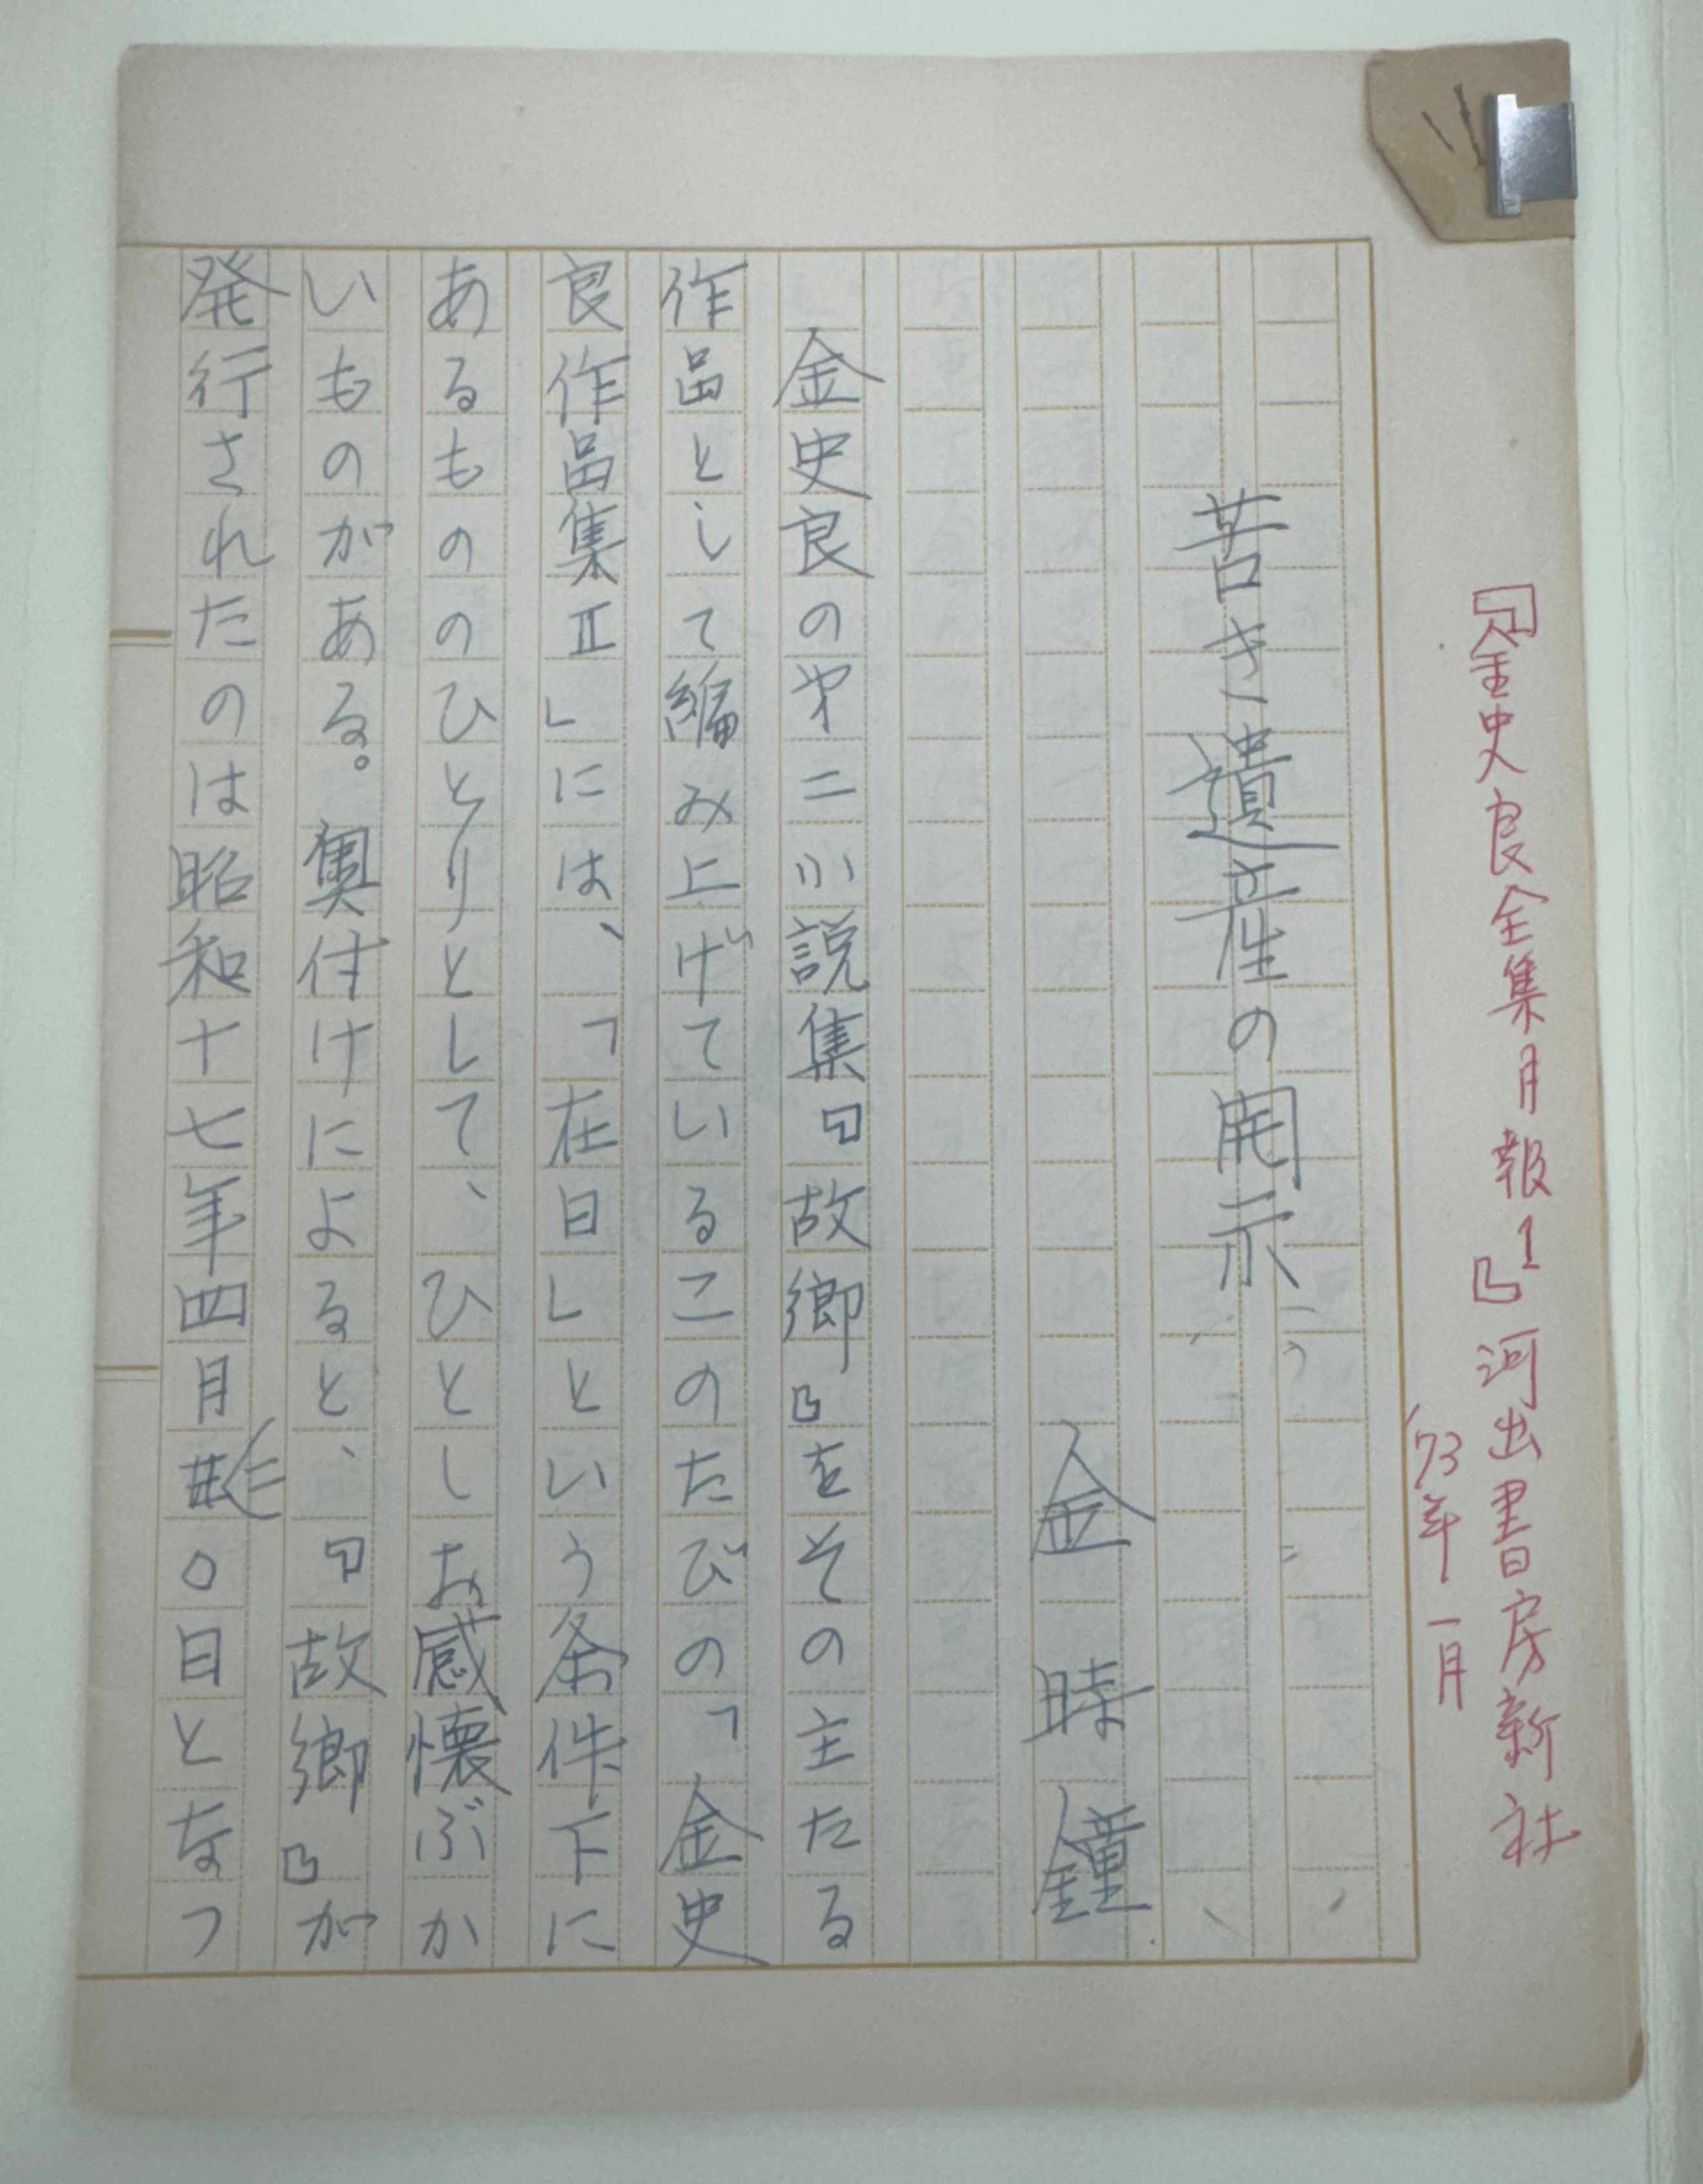 『金史良全集月報1』河出書房新社
'73年一月
苦き遺産の開示
金時鐘
金史良の㐧二小説集『故郷』をその主たる
作品として編み上げているこのたびの「金史
良作品集Ⅱ」には、「在日」という条件下に
あるもののひとりとして、ひとしお感懐ぶか
いものがある。奥付けによると、『故郷』が
発行されたのは昭和十七年四月〇日となつ